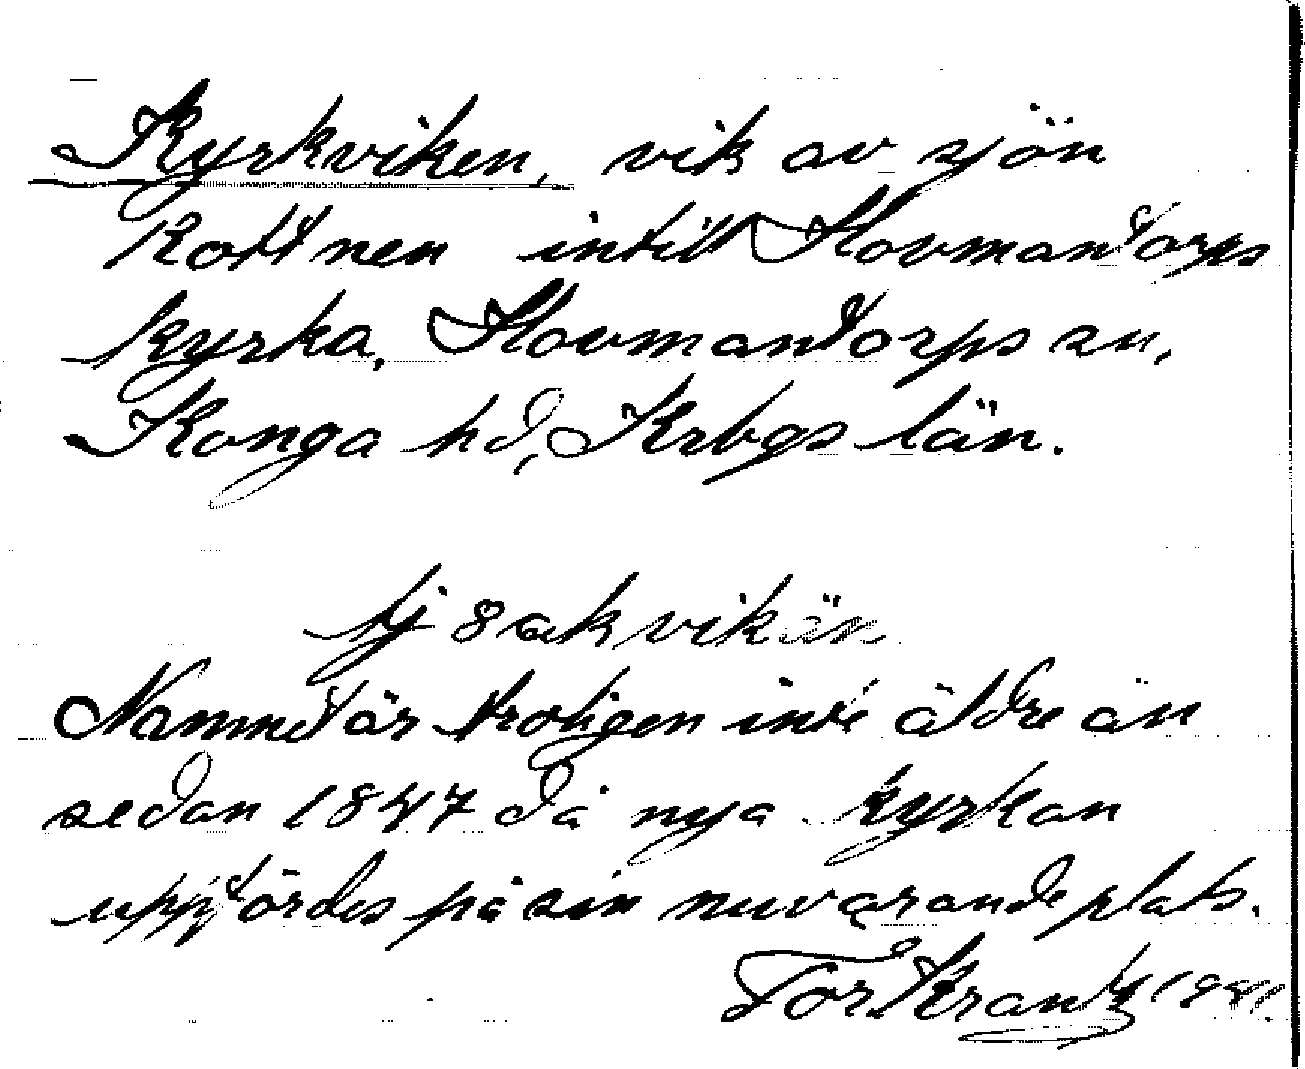 Kyrkviken, vik av sjön
Rottnen intill Hovmantorps
kyrka, Hovmantorps sn,
Konga hd, Krbgs län.
Namnet är troligen inte äldre än
sedan 1847 då nya kyrkan
uppfördes på sin nuvarande plats.
Tor Krantz 1941.